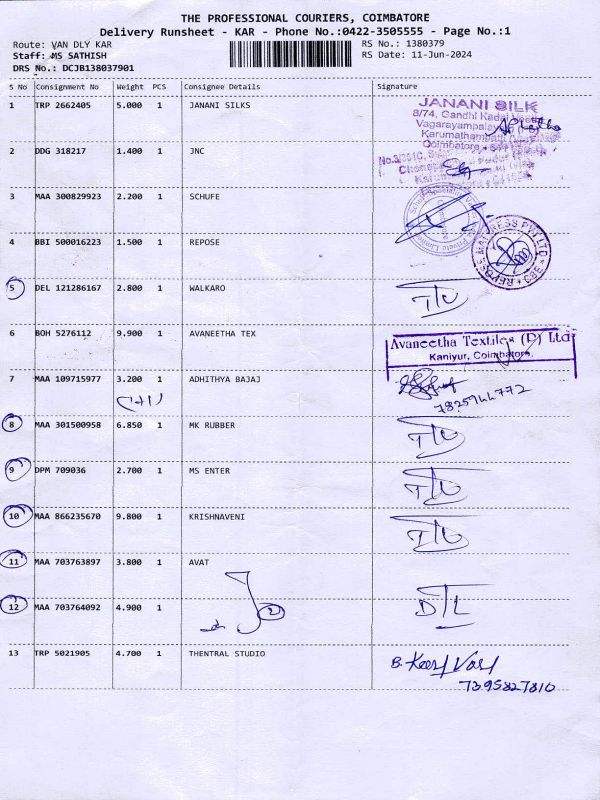 THE PROFESSIONAL COURIERS, COIMBATORE
Delivery Runsheet - KAR - Phone No.:0422-3505555 - Page No.:1
Route: VAN DLY KAR
RS No.: 1380379
Staff: MS SATHISH
RS Date: 11-Jun-2024
DRS No.: DCJB138037901
S No Consignment No Weight PCS Consignee Details Signature
1 TRP 2662405 5.000 1 JANANI SILKS
JANANI SILK
8/74, Gandhi Kadai
Vagarayampalay
Karumathampatti
Coimbatore
2 DDG 318217 1.400 1 JNC
3 MAA 300829923 2.200 1 SCHUFE
4 BBI 500016223 1.500 1 REPOSE
REPOSE MATTRESS PVT LTD * CBE *
5 DEL 121286167 2.800 1 WALKARO
6 BOH 5276112 9.900 1 AVANEETHA TEX
Avaneetha Textiles (P) Ltd
Kaniyur, Coimbatore.
7 MAA 109715977 3.200 1 ADHITHYA BAJAJ
8 MAA 301500958 6.850 1 MK RUBBER
9 DPM 709036 2.700 1 MS ENTER
10 MAA 866235670 9.800 1 KRISHNAVENI
11 MAA 703763897 3.800 1 AVAT
12 MAA 703764092 4.900 1
D/L
13 TRP 5021905 4.700 1 THENTRAL STUDIO
7395827810